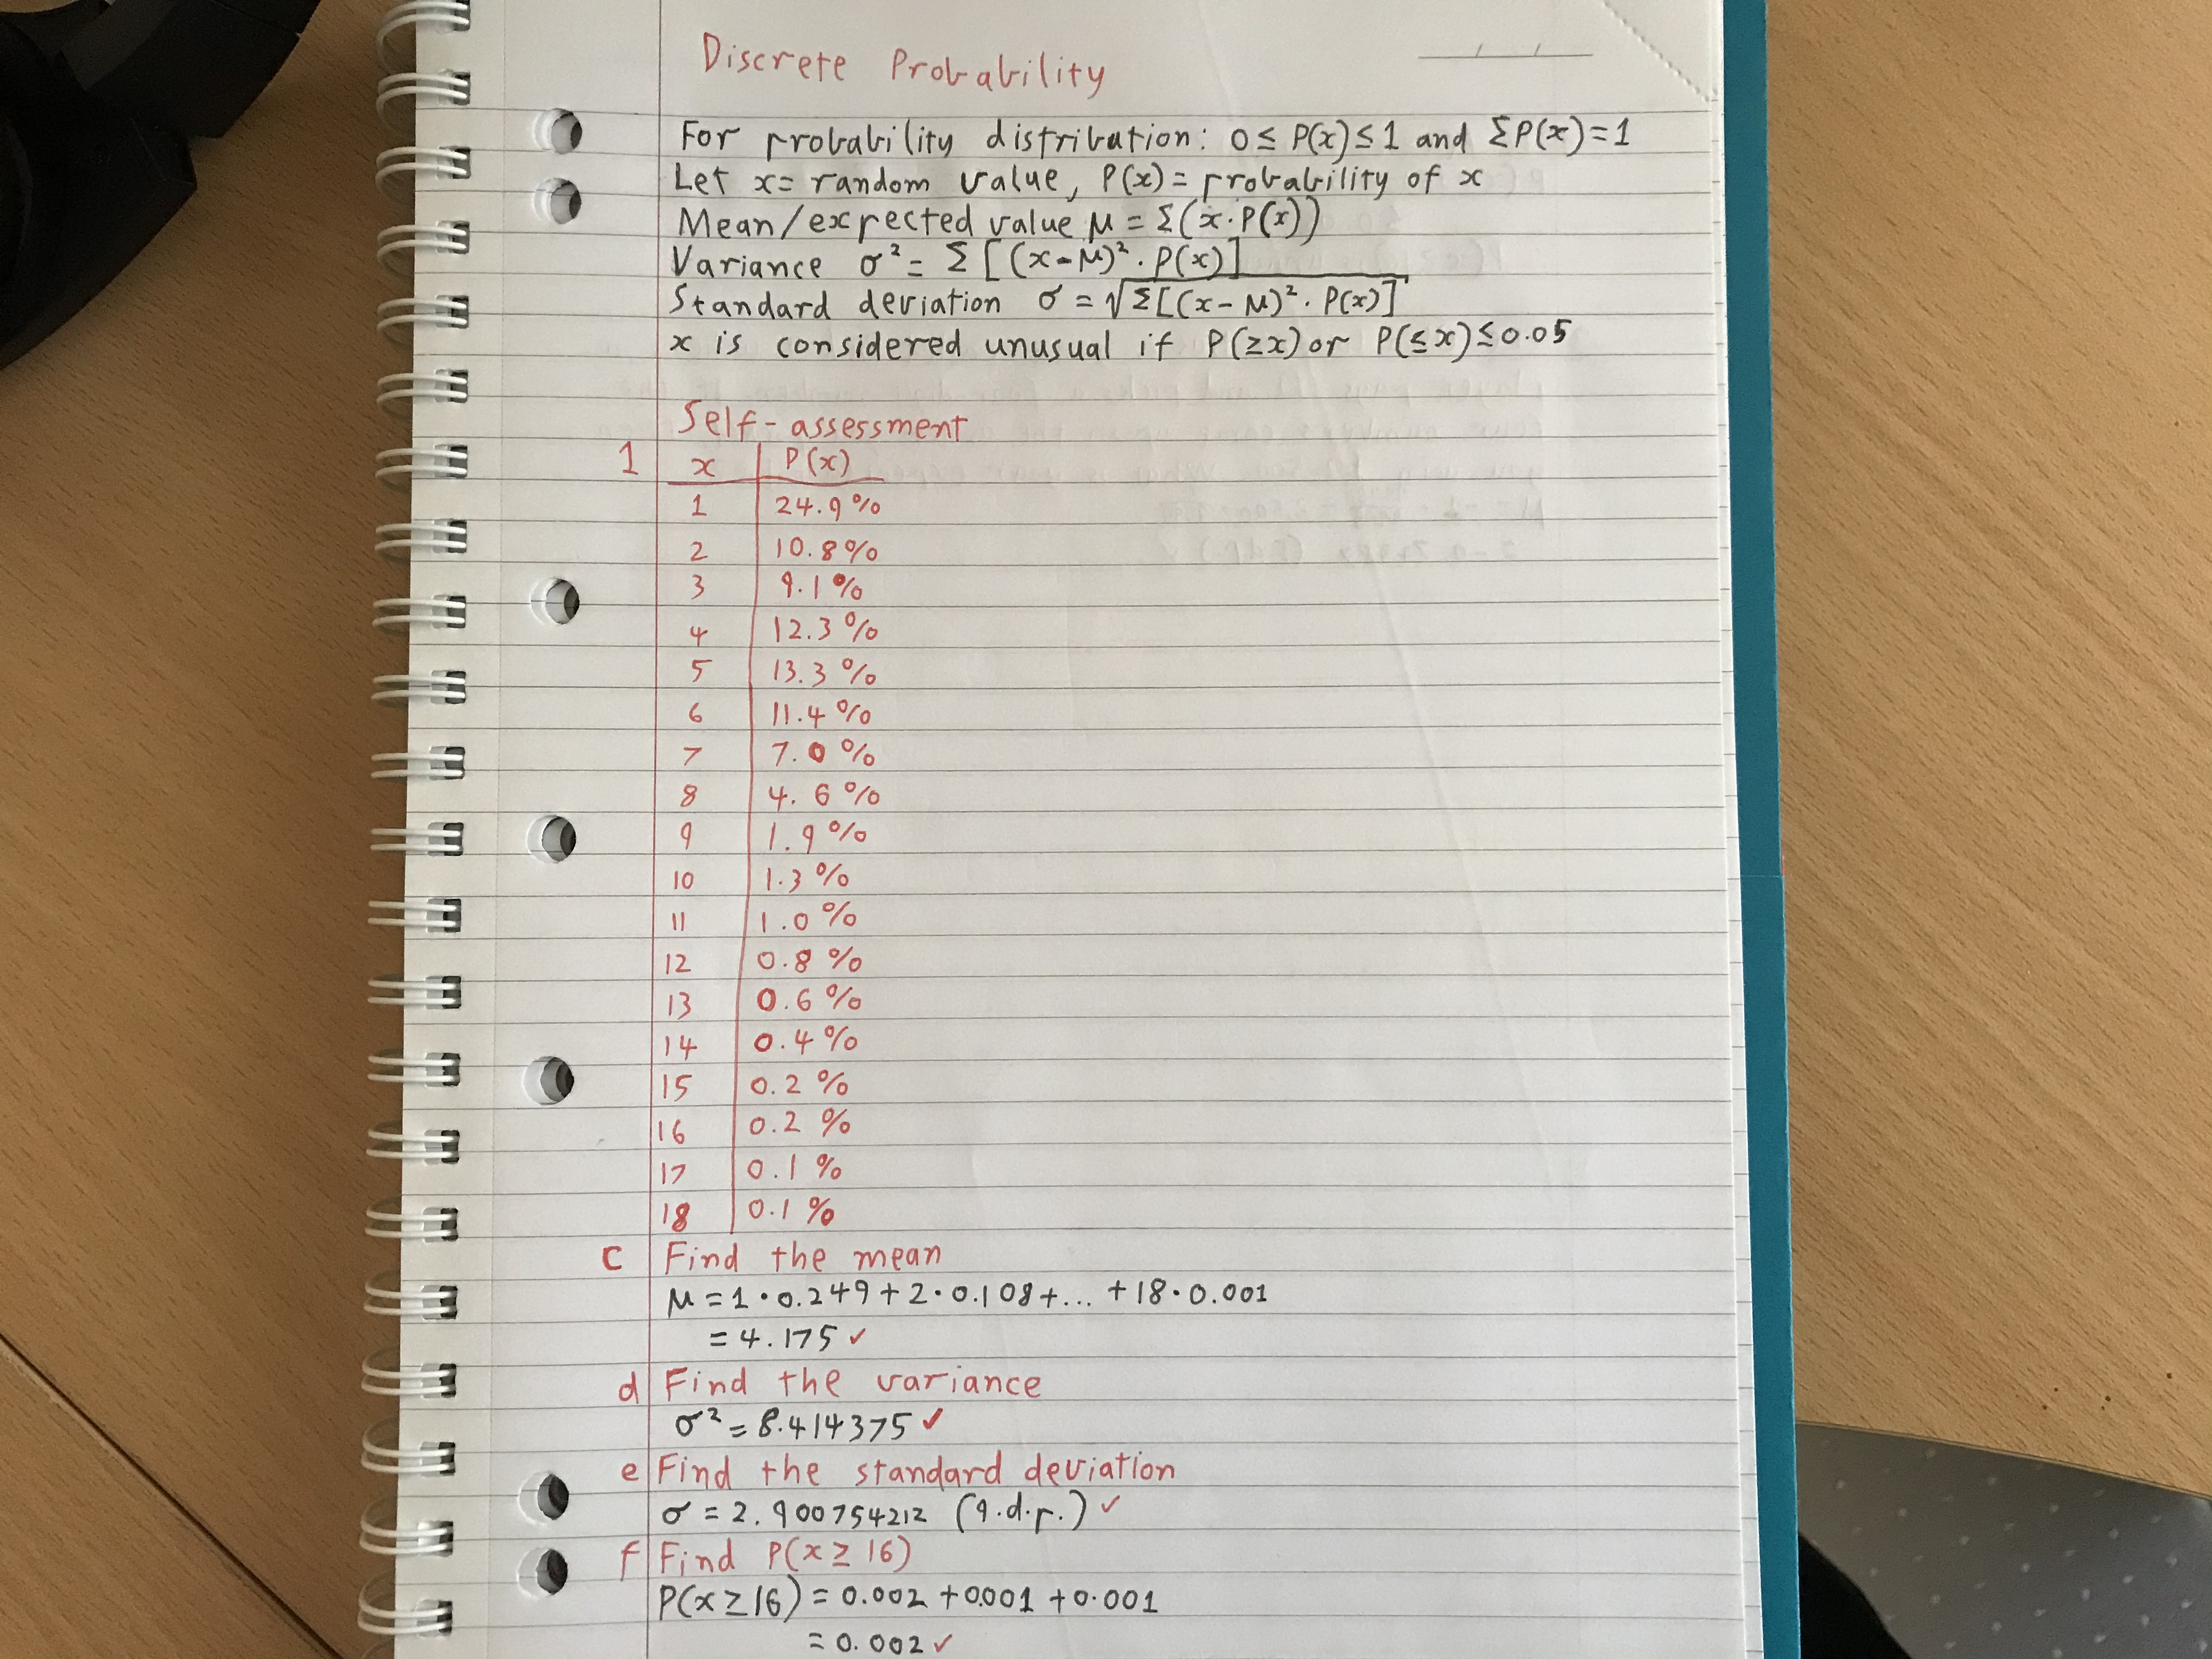 Discrete Probability
For probability distribution: 0 ≤ P(x) ≤ 1 and ΣP(x)=1
Let x = random value, P(x) = probability of x
Mean/expected value μ = Σ(x·P(x))
Variance σ² = Σ[(x-μ)²·P(x)]
Standard deviation σ = √Σ[(x-μ)²·P(x)]
x is considered unusual if P(≥x) or P(≤x) ≤ 0.05
Self-assessment
1 x P(x)
1 24.9%
2 10.8%
3 9.1%
4 12.3%
5 13.3%
6 11.4%
7 7.0%
8 4.6%
9 1.9%
10 1.3%
11 1.0%
12 0.8%
13 0.6%
14 0.4%
15 0.2%
16 0.2%
17 0.1%
18 0.1%
c Find the mean
μ = 1·0.249 + 2·0.108 + ... + 18·0.001
= 4.175 ✓
d Find the variance
σ² = 8.414375 ✓
e Find the standard deviation
σ = 2.900754212 (9.d.p.) ✓
f Find P(x ≥ 16)
P(x ≥ 16) = 0.002 + 0.001 + 0.001
= 0.002 ✓